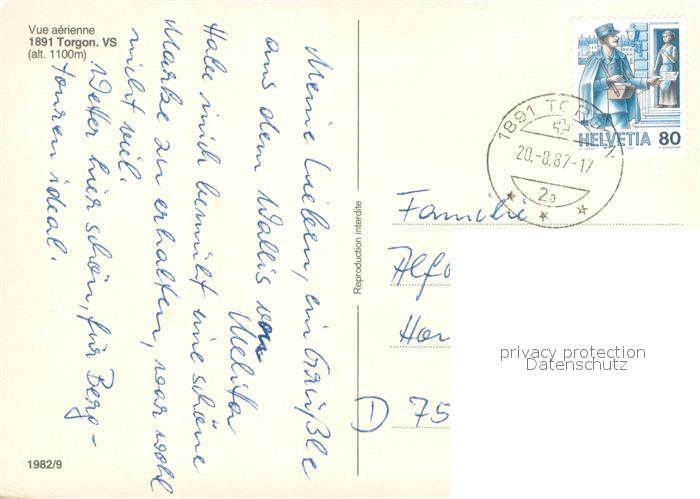 Vue aérienne
1891 Torgon. VS
(alt. 1100m)
Meine Lieben, ein Grüßle
aus dem Wallis von
Melitta
Habe mich bemüht eine schöne
Marke zu erhalten, war wohl
nicht viel.
Wetter hier schön, für Berg-
touren ideal.
1982/9
Reproduction interdite
HELVETIA 80
1891 TORGON
20.-8.87-17
2a
Familie
Alfo
Hor
D 75
privacy protection
Datenschutz